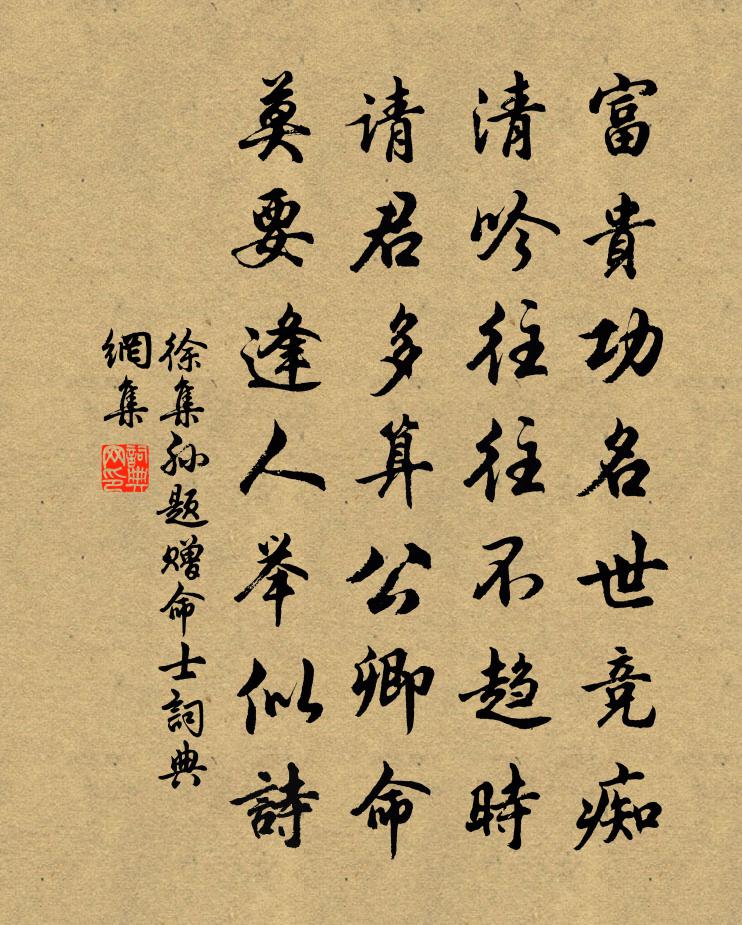 富貴功名世竞痴
清吟往往不趋時
请君多算公卿命
莫要逢人举似詩
徐集孙题赠命士詞典
網集
詞典
网印